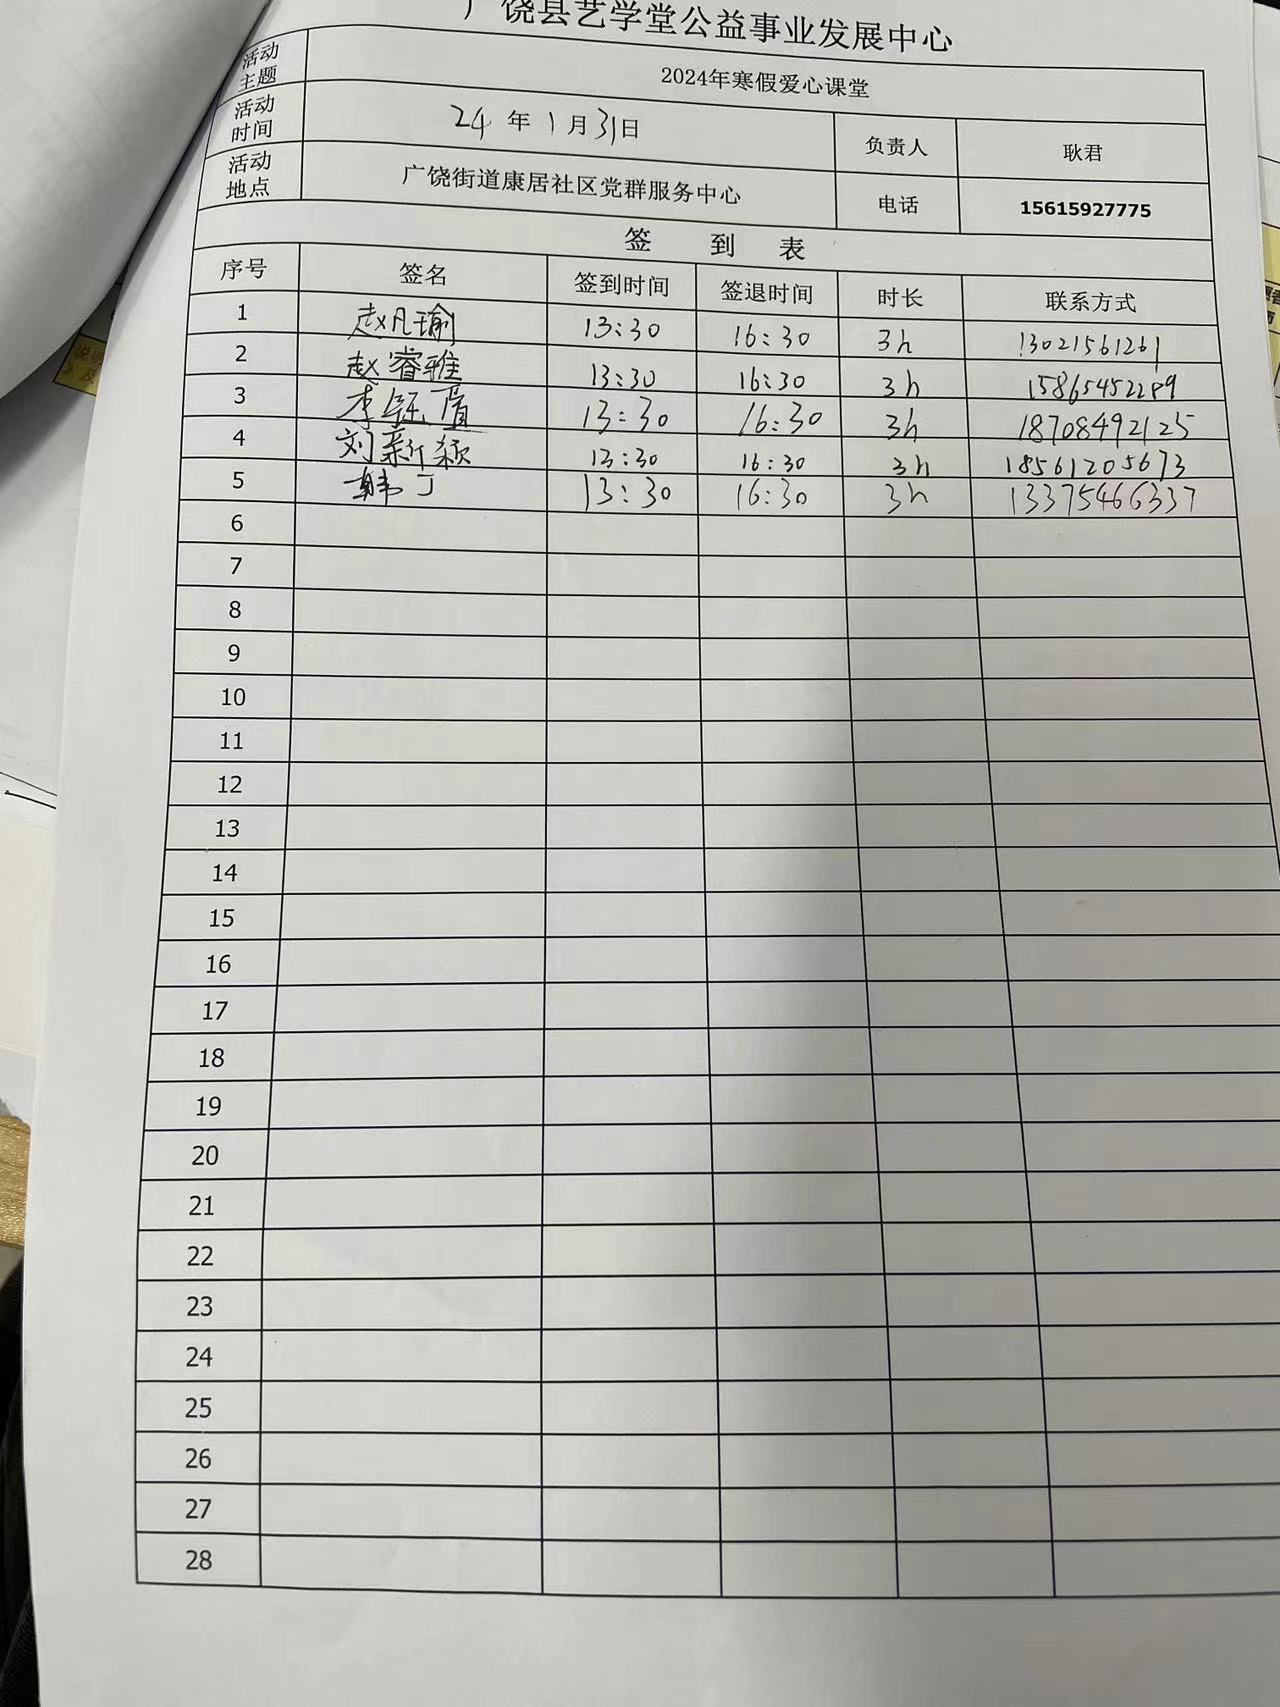 广饶县艺学堂公益事业发展中心
活动主题 2024年寒假爱心课堂
活动时间 24年1月31日 负责人 耿君
活动地点 广饶街道康居社区党群服务中心 电话 15615927775
签 到 表
序号 签名 签到时间 签退时间 时长 联系方式
1 赵凡瑜 13:30 16:30 3h 13021561261
2 赵睿雅 13:30 16:30 3h 15865452289
3 李钰 13:30 16:30 3h 18708492125
4 刘新颖 13:30 16:30 3h 18561205673
5 韩丁 13:30 16:30 3h 13375466337
6
7
8
9
10
11
12
13
14
15
16
17
18
19
20
21
22
23
24
25
26
27
28